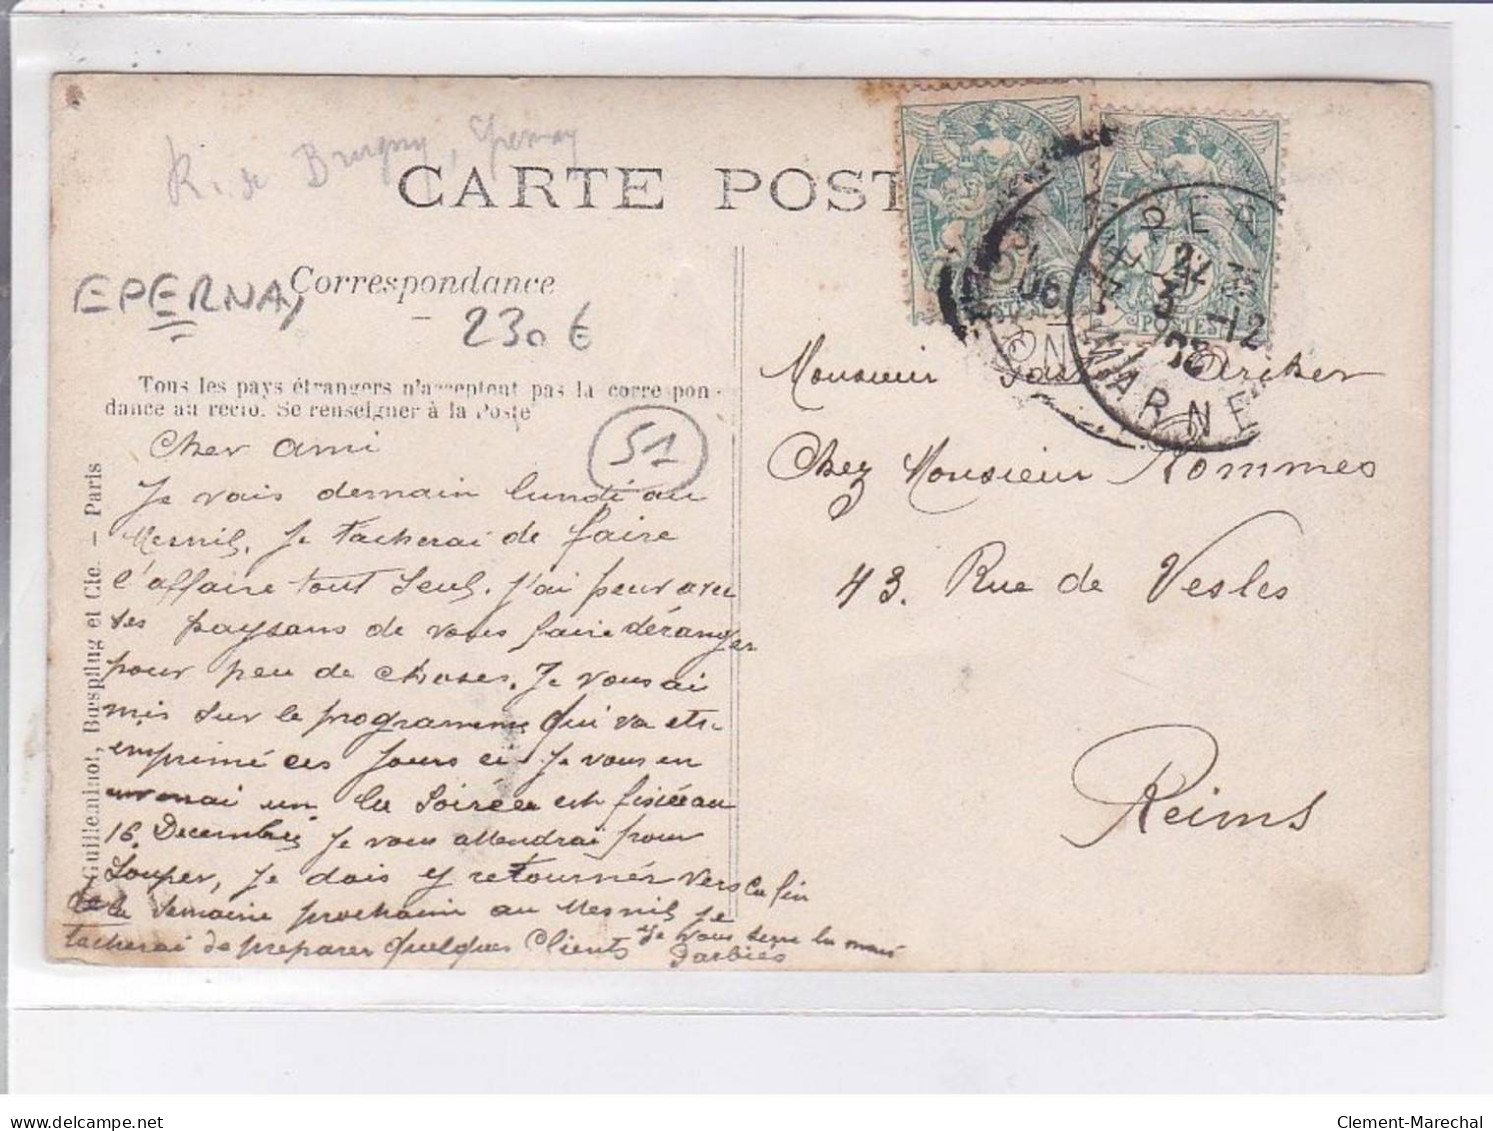 R. de Brugny, Epernay
CARTE POST
EPERNAY
Correspondance
230€
Tous les pays étrangers n'acceptent pas la correspon-
dance au recto. Se renseigner à la Poste
51
Guilleminot, Bœspflug et Cie. — Paris
Cher ami
Je vais demain lundi au
Mesnil. Je tacherai de faire
l'affaire tout seul. J'ai peur avec
ses paysans de vous faire déranger
pour peu de choses. Je vous ai
mis sur le programme qui va etr
imprimé ces jours ci Je vous en
un La Soirée est fixée au
16 Decembre Je vous attendrai pour
Souper, Je dois y retourner vers la fin
de la semaine prochain au Mesnil je
tacherai de preparer quelques Clients Je vous serre la main
Darbies
POSTES
06
EPERNAY
3 -12
06
MARNE
Monsieur Archer
Chez Monsieur Nommes
43. Rue de Vesles
Reims
Clement-Marechal